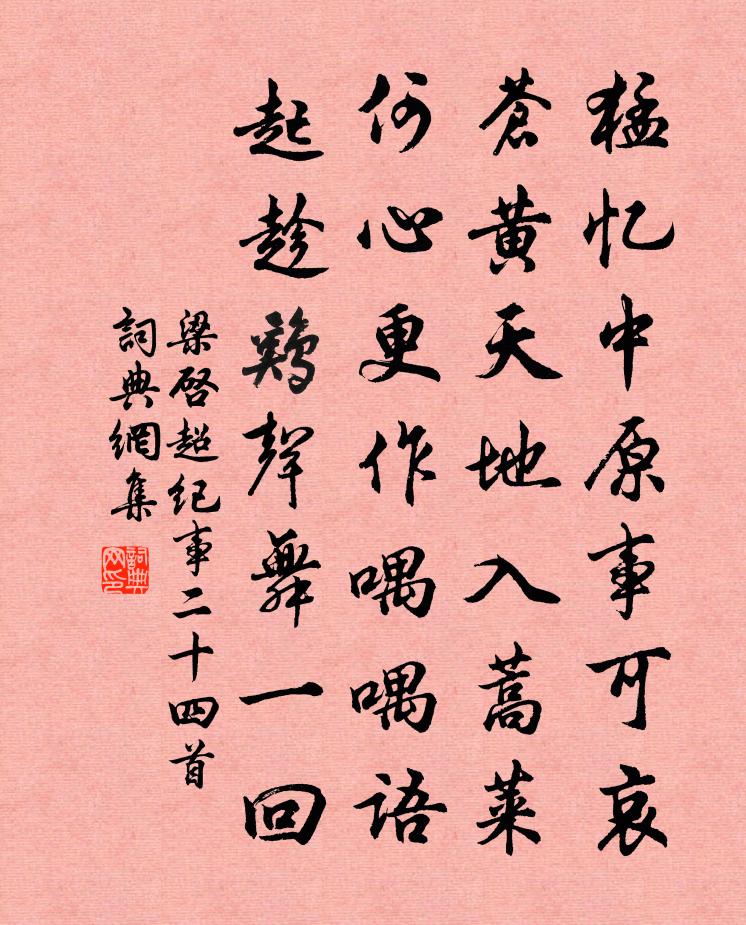 猛忆中原事可哀
蒼黃天地入蒿萊
何心更作喁喁語
起趁鷄聲舞一回
梁啓超纪事二十四首
詞典網集
詞典网印